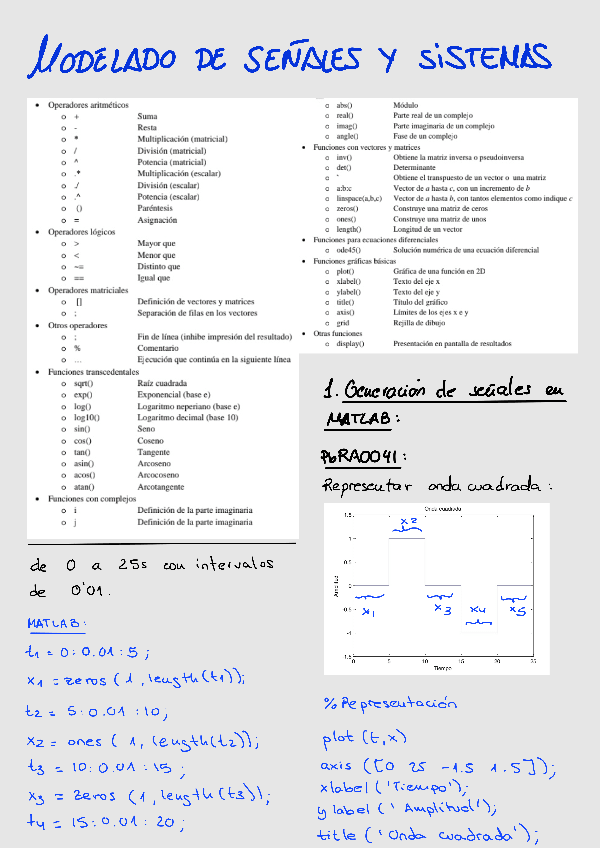 MODELADO DE SEÑALES Y SISTEMAS
• Operadores aritméticos
o + Suma
o - Resta
o * Multiplicación (matricial)
o / División (matricial)
o ^ Potencia (matricial)
o .* Multiplicación (escalar)
o ./ División (escalar)
o .^ Potencia (escalar)
o () Paréntesis
o = Asignación
• Operadores lógicos
o > Mayor que
o < Menor que
o ~= Distinto que
o == Igual que
• Operadores matriciales
o [] Definición de vectores y matrices
o ; Separación de filas en los vectores
• Otros operadores
o ; Fin de línea (inhibe impresión del resultado)
o % Comentario
o ... Ejecución que continúa en la siguiente línea
• Funciones transcedentales
o sqrt() Raíz cuadrada
o exp() Exponencial (base e)
o log() Logaritmo neperiano (base e)
o log10() Logaritmo decimal (base 10)
o sin() Seno
o cos() Coseno
o tan() Tangente
o asin() Arcoseno
o acos() Arcocoseno
o atan() Arcotangente
• Funciones con complejos
o i Definición de la parte imaginaria
o j Definición de la parte imaginaria
o abs() Módulo
o real() Parte real de un complejo
o imag() Parte imaginaria de un complejo
o angle() Fase de un complejo
• Funciones con vectores y matrices
o inv() Obtiene la matriz inversa o pseudoinversa
o det() Determinante
o ' Obtiene el transpuesto de un vector o una matriz
o a:b:c Vector de a hasta c, con un incremento de b
o linspace(a,b,c) Vector de a hasta b, con tantos elementos como indique c
o zeros() Construye una matriz de ceros
o ones() Construye una matriz de unos
o length() Longitud de un vector
• Funciones para ecuaciones diferenciales
o ode45() Solución numérica de una ecuación diferencial
• Funciones gráficas básicas
o plot() Gráfica de una función en 2D
o xlabel() Texto del eje x
o ylabel() Texto del eje y
o title() Título del gráfico
o axis() Límites de los ejes x e y
o grid Rejilla de dibujo
• Otras funciones
o display() Presentación en pantalla de resultados
1. Generación de señales en
MATLAB:
PbRA0041:
Representar onda cuadrada:
Onda cuadrada
1.5
x2
1
0.5
0
-0.5
x1 x3 x4 x5
-1
-1.5
0 5 10 15 20 25
Tiempo
Amplitud
de 0 a 25s con intervalos
de 0'01.
MATLAB:
t1 = 0:0.01:5;
x1 = zeros (1, length(t1));
t2 = 5:0.01:10,
x2 = ones (1, length(t2));
t3 = 10:0.01:15;
x3 = zeros (1, length(t3));
t4 = 15:0.01:20;
% Representación
plot (t,x)
axis ([0 25 -1.5 1.5]);
xlabel ('Tiempo');
ylabel ('Amplitud');
title ('Onda cuadrada');